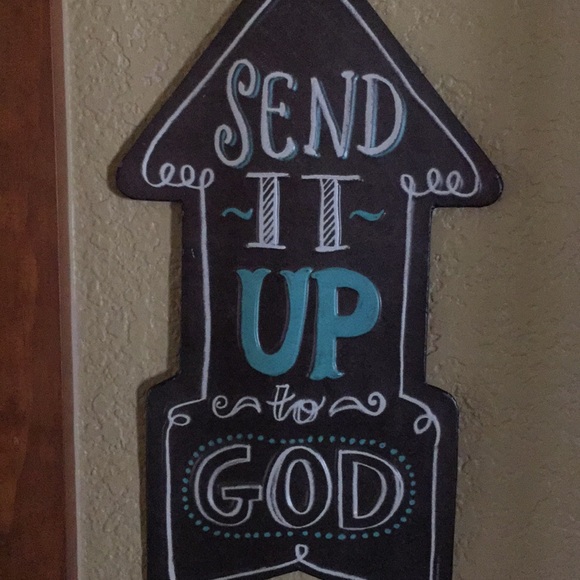 SEND
~IT~
UP
to
GOD